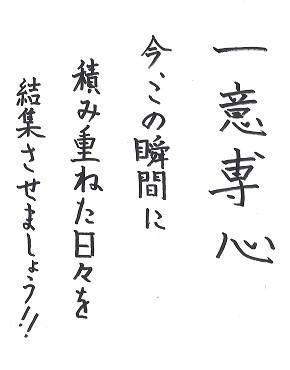 一意専心
今、この瞬間に
積み重ねた日々を
結集させましょう!!